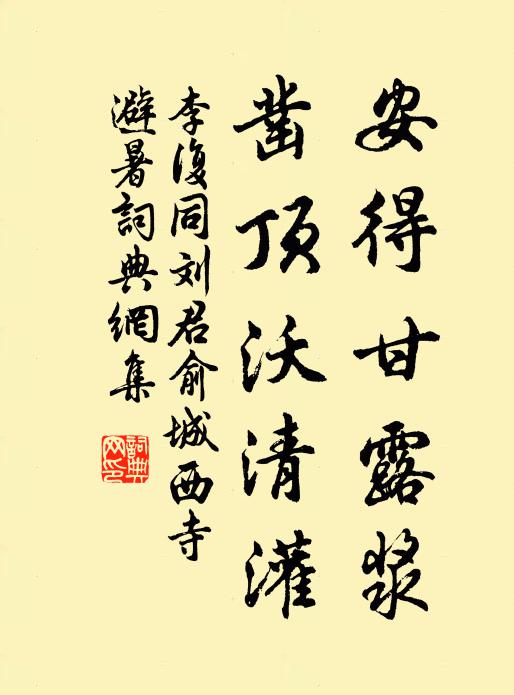 安得甘露漿
凿頂沃清灌
李復同刘君俞城西寺
避暑詞典網集
詞典网印